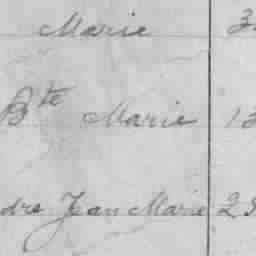 Marie 3
Bte Marie 13
dre Jean Marie 28